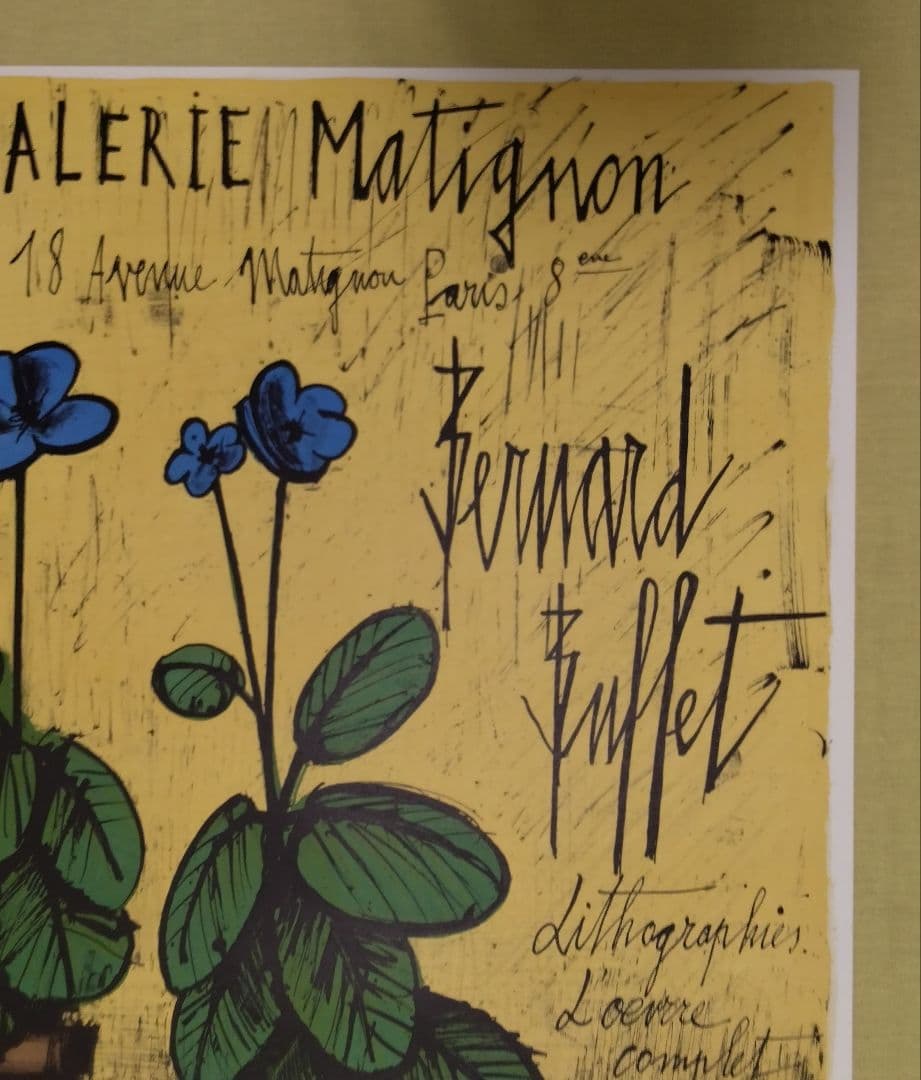 ALERIE Matignon
18 Avenue Matignon Paris 8 eme
Bernard
Buffet
Lithographies
L'oevre
complet